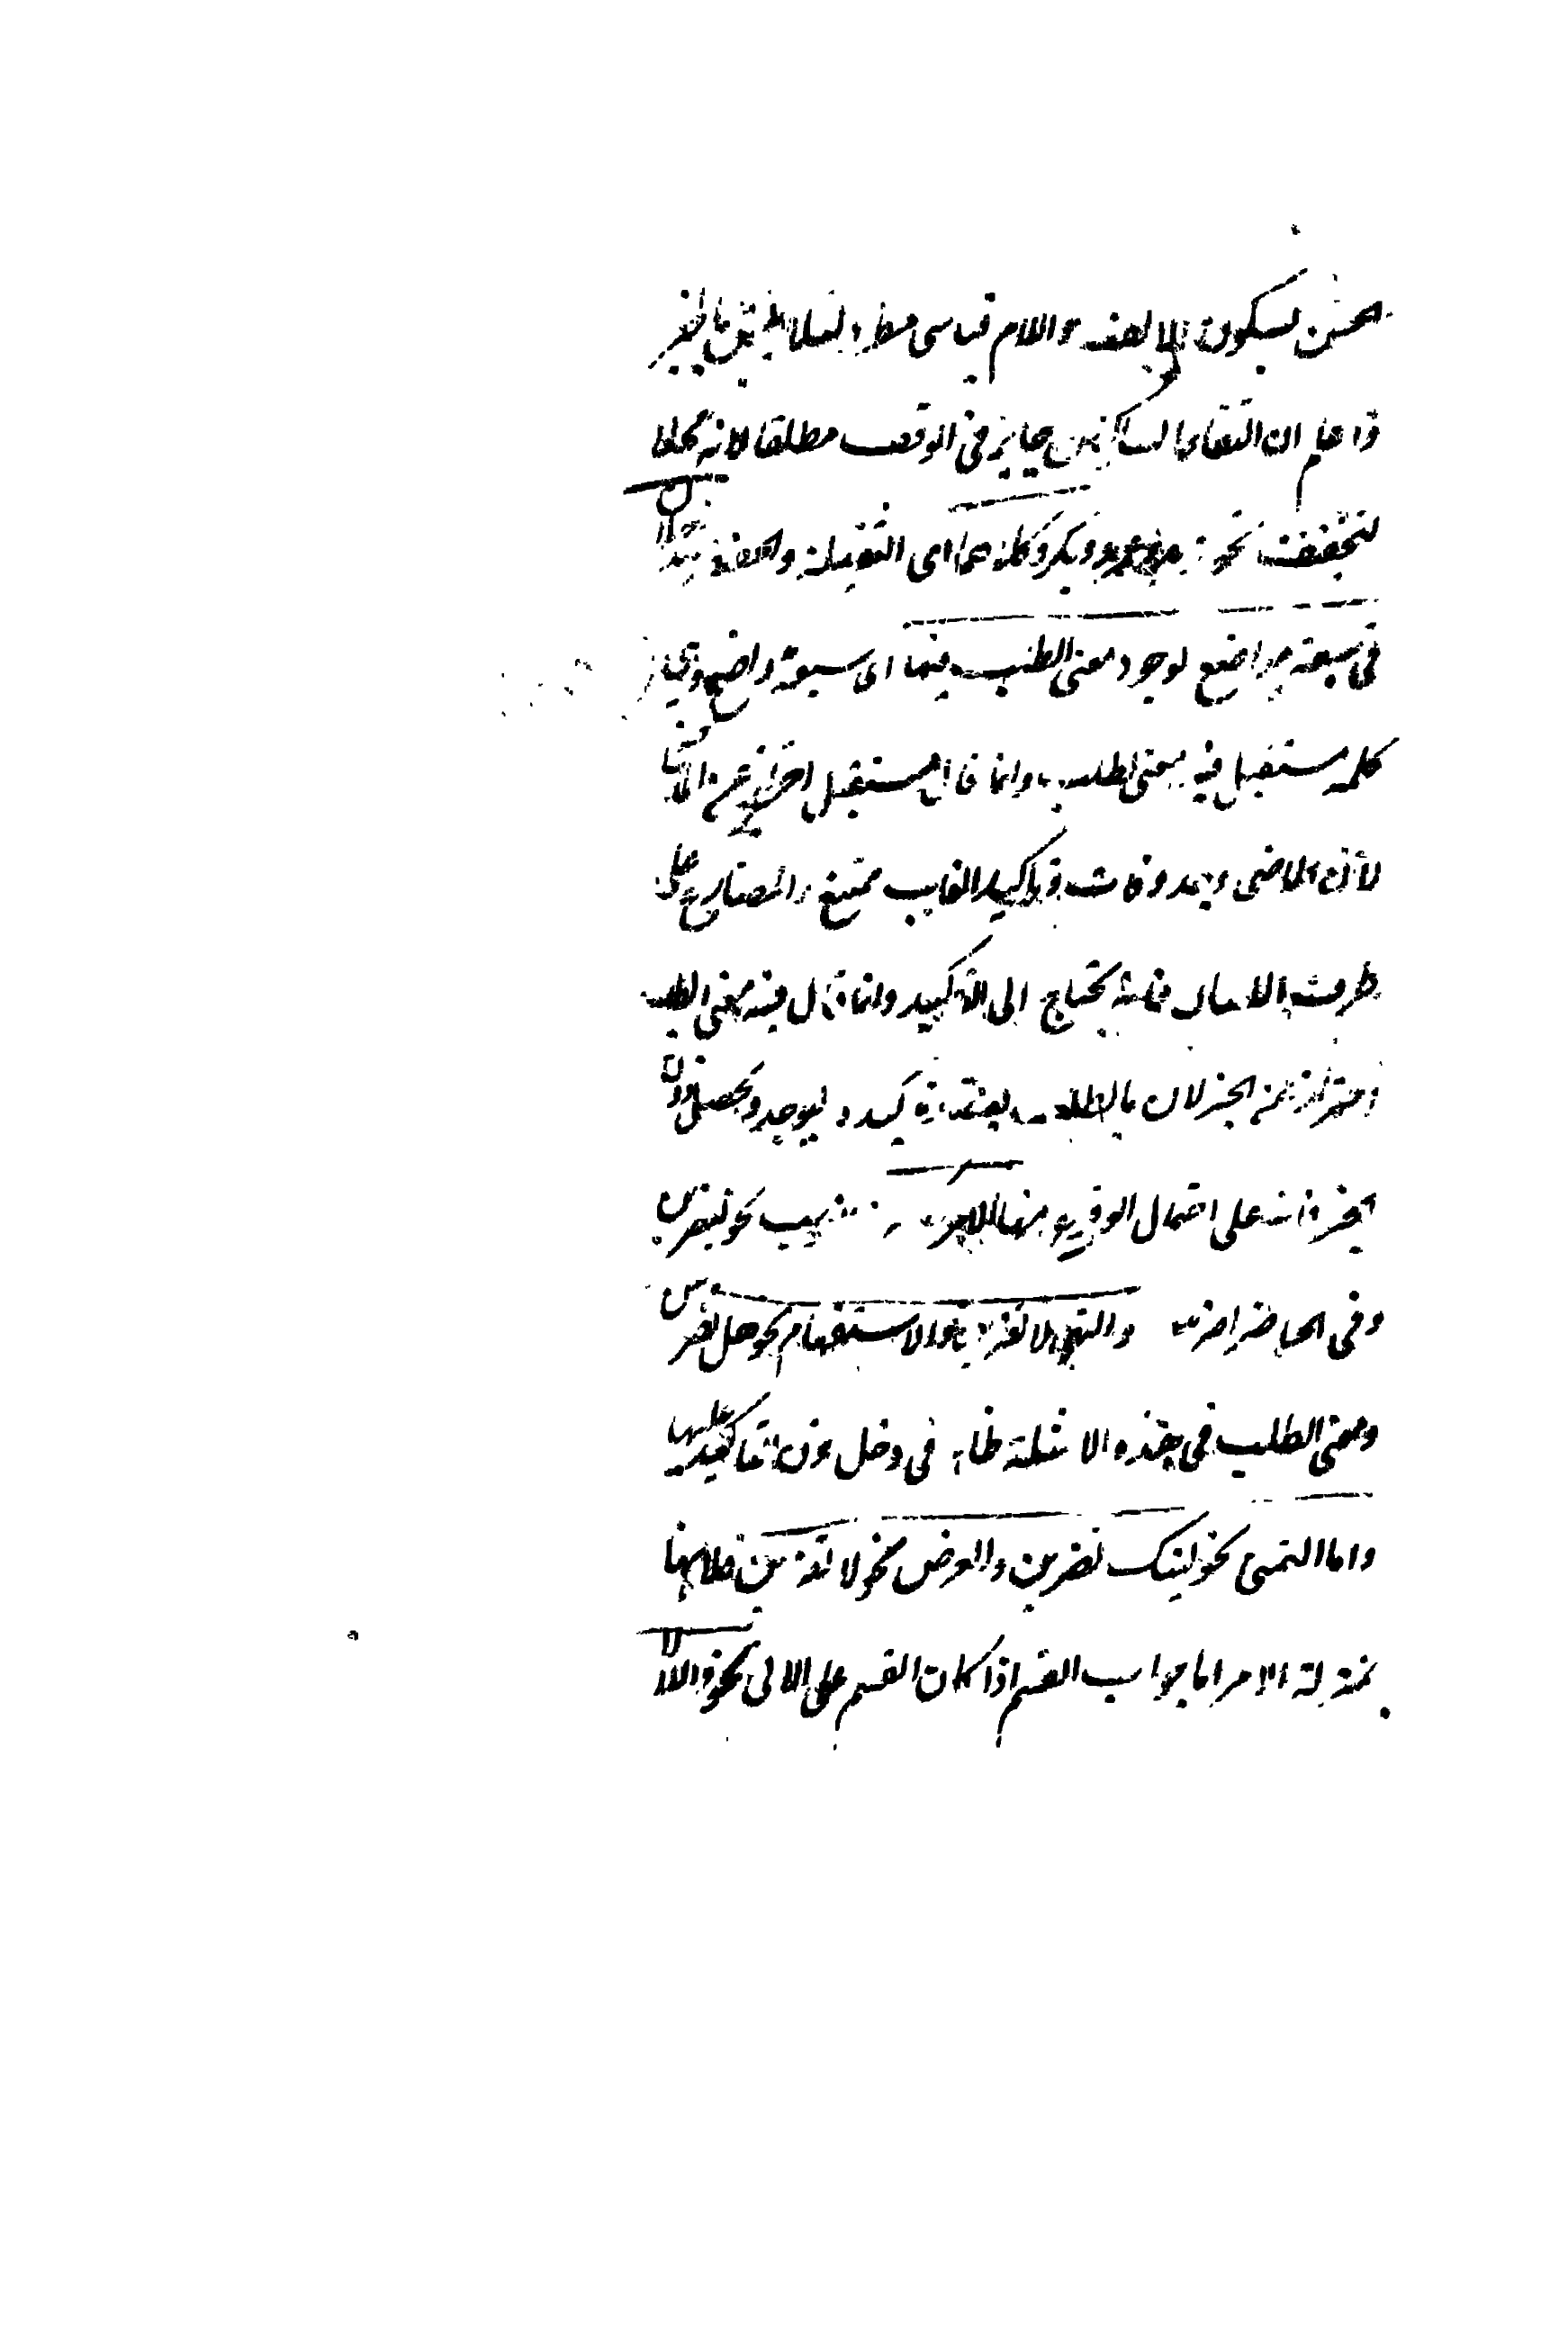 الحسن بسكون الالف واللام قياسى مطرد لئلا يلتبس بالخبر
واعلم ان التقاء الساكنين جايز فى الوقف مطلقا لانه محل
لتخفيف نحو زيد وعمرو وبكر وكلاهما اى الثقيلة والخفيفة تدخلان
فى سبعة مواضع لوجود معنى الطلب فيها اى سبعة مواضع
كلمه مستقبل فيه معنى الطلب وانما قال مستقبل احترازا عن الماضى
لأن الماضى وجد وفات وتأكيد الفايت ممتنع والمضارع على
طرف الامكان فانه يحتاج الى التأكيد وانما قال فيه معنى الطلب
احترازا عن الخبر لان بالطلب يعتقد تأكيده ليوجد ويحصل دون
الخبر فانه على احتمال الوقوع منها الامر نحو ليضربن
وفى الحاضر اضربن والنهى لا تضربن والاستفهام نحو هل تضربن
ومعنى الطلب فى هذه الامثلة ظاهر فى دخل نون التأكيد عليها
واما التمنى نحو ليتك تضربن والعرض نحو لا تضربن فلانهما
بمنزلة الامر اما جواب القسم اذا كان القسم على الاتى نحو والله لا